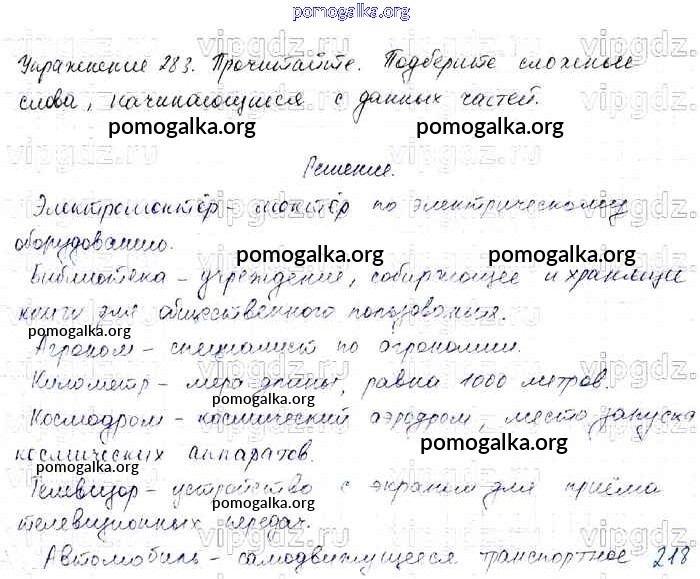 pomogalka.org
Упражнение 283. Прочитайте. Подберите сложные
слова, начинающиеся с данных частей.
pomogalka.org pomogalka.org
Решение.
Электромонтёр – монтёр по электрическому
оборудованию.
pomogalka.org pomogalka.org
Библиотека – учреждение, собирающее и хранящее
книги для общественного пользования.
pomogalka.org
Агроном – специалист по агрономии.
Километр – мера длины, равна 1000 метров.
pomogalka.org pomogalka.org
Космодром – космический аэродром, место запуска
космических аппаратов.
pomogalka.org pomogalka.org
Телевизор – устройство с экраном для приёма
телевизионных передач.
pomogalka.org pomogalka.org
Автомобиль – самодвижущееся транспортное 218